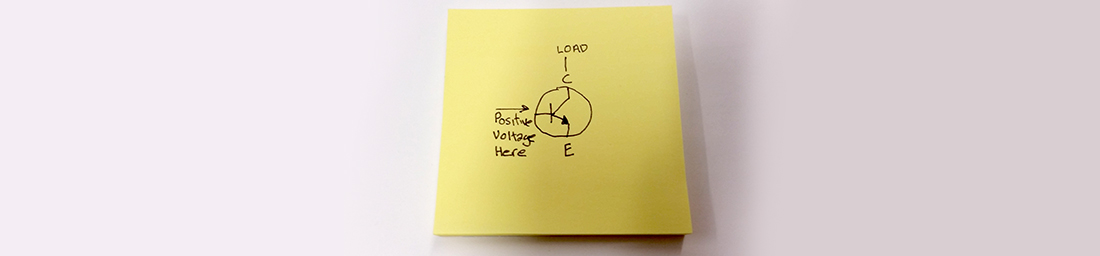 LOAD
C
Positive
Voltage
Here
E